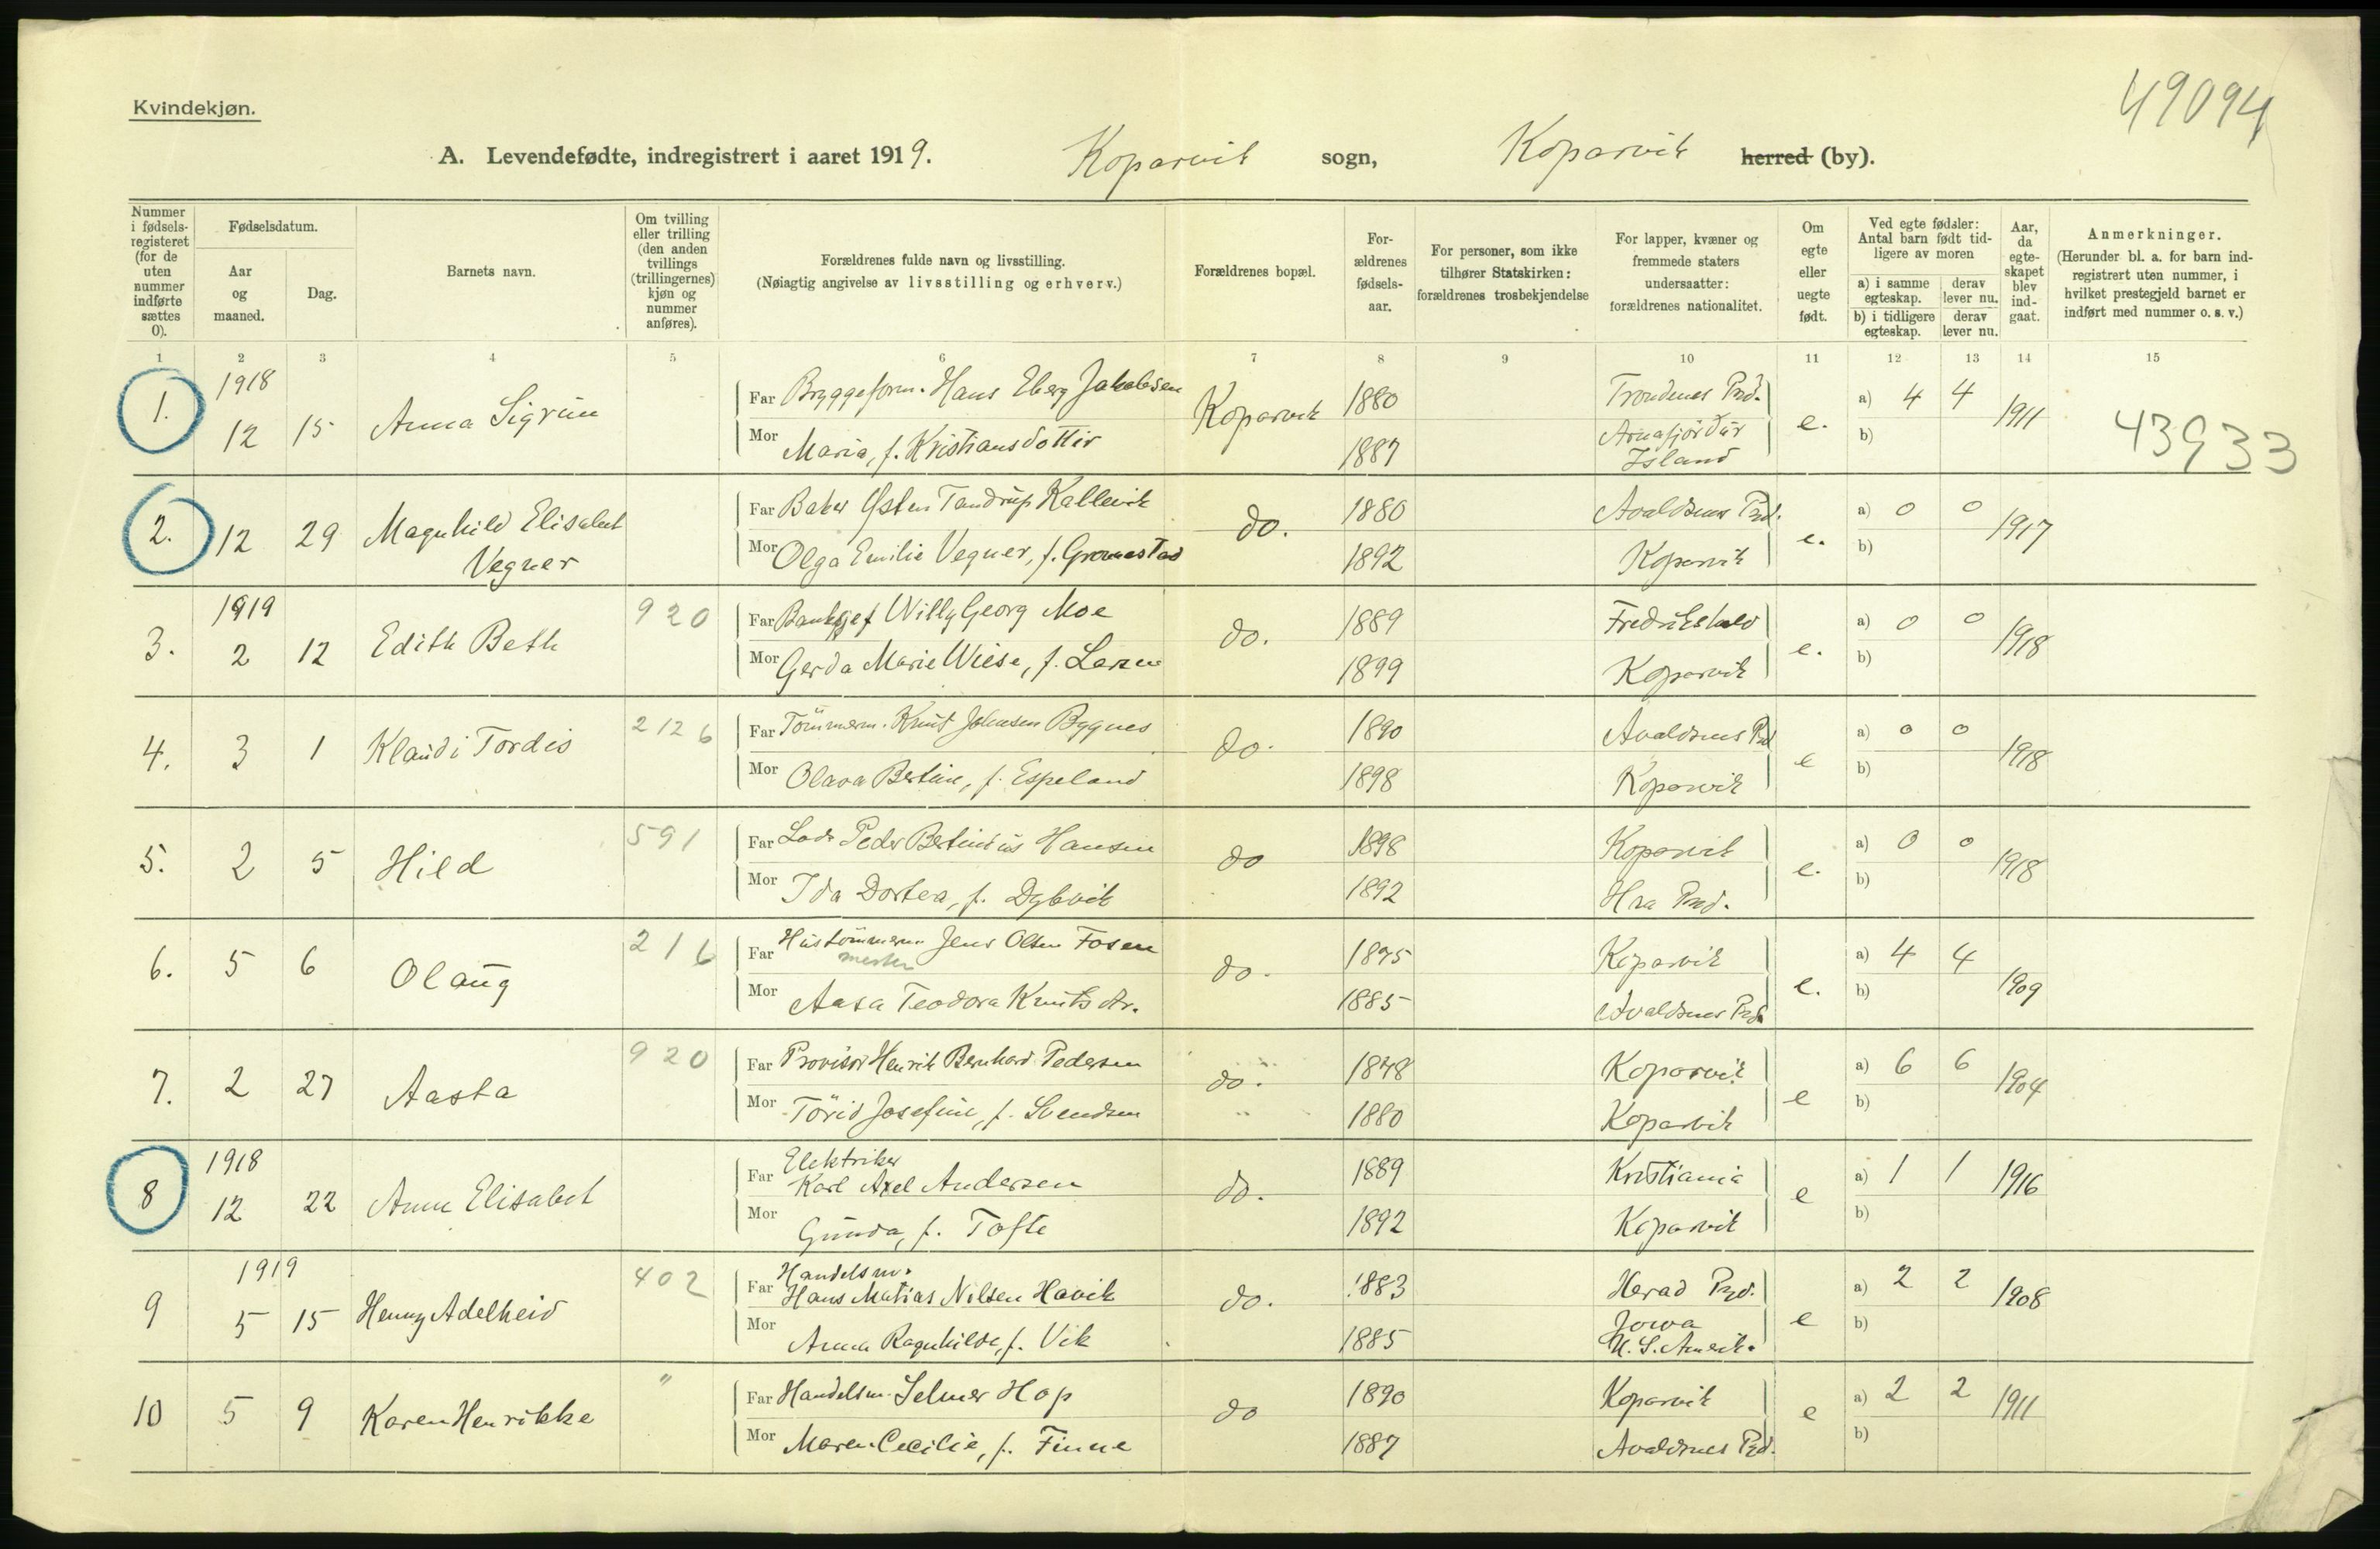 49094
Kvindekjøn.
A. Levendefødte, indregistrert i aaret 1919. Kopervik sogn, Kopervik herred (by).
Nummer i fødselsregisteret (for de uten nummer indførte sættes 0).
Fødselsdatum.
Aar og maaned.
Dag.
Barnets navn.
Om tvilling eller trilling (den anden tvillings (trillingernes) kjøn og nummer anføres).
Forældrenes fulde navn og livsstilling.
(Nøiagtig angivelse av livsstilling og erhverv.)
Forældrenes bopæl.
Forældrenes fødselsaar.
For personer, som ikke tilhører Statskirken: forældrenes trosbekjendelse
For lapper, kvæner og fremmede staters undersaatter: forældrenes nationalitet.
Om egte eller uegte født.
Ved egte fødsler: Antal barn født tidligere av moren
a) i samme egteskap. derav lever nu.
b) i tidligere egteskap. derav lever nu.
Aar, da egteskapet blev indgaat.
Anmerkninger.
(Herunder bl. a. for barn indregistrert uten nummer, i hvilket prestegjeld barnet er indført med nummer o. s. v.)
1 2 3 4 5 6 7 8 9 10 11 12 13 14 15
1. 1918 12 15 Anna Sigrun Far Bryggeform. Hans Eberg Jakobsen Kopervik 1880 Trondenes Pred. e. a) 4 4 1911 43933
Mor Maria, f. Kristiansdottir 1887 Arnafjördur Island b)
2. 12 29 Magnhild Elisabet Vegner Far Baker Østen Tandrup Kallevik do. 1880 Avaldsnes Pred. e. a) 0 0 1917
Mor Olga Emilie Vegner, f. Grønnestad 1892 Kopervik b)
3. 1919 2 12 Edith Beth 920 Far Banksjef Willy Georg Moe do. 1889 Fredrikshald e. a) 0 0 1918
Mor Gerda Marie Wiese, f. Larsen 1899 Kopervik b)
4. 3 1 Klaudi Tordis 2126 Far Tömmerm. Knut Johnsen Bygnes do. 1890 Avaldsnes Pred e a) 0 0 1918
Mor Olava Bertine, f. Espeland 1898 Kopervik b)
5. 2 5 Hild 591 Far Lods Peder Bertinius Hansen do 1898 Kopervik e. a) 0 0 1918
Mor Ida Dortea, f. Dybvik 1892 Hra Pred. b)
6. 5 6 Olaug 216 Far Hustömmerm mester Jens Olsen Fosen do. 1875 Kopervik e. a) 4 4 1909
Mor Aasa Teodora Knutsdtr. 1885 Avaldsnes Pred. b)
7. 2 27 Aasta 920 Far Provisor Henrik Bernhard Pedersen do. 1878 Kopervik e a) 6 6 1904
Mor Törid Josefine, f. Svendsen 1880 Kopervik b)
8 1918 12 22 Anne Elisabet Far Elektriker Karl Axel Andersen do. 1889 Kristiania e a) 1 1 1916
Mor Gunda, f. Tofte 1892 Kopervik b)
9 1919 5 15 Henny Adelheid 402 Far Handelsm. Hans Matias Nilsen Havik do. 1883 Herad Pred. e a) 2 2 1908
Mor Anna Ragnhilde, f. Vik 1885 Jowa U. S. Amerik. b)
10 5 9 Karen Henrikke " Far Handelsm. Selmer Hop do 1890 Kopervik e a) 2 2 1911
Mor Maren Cecilie, f. Finne 1887 Avaldsnes Pred. b)